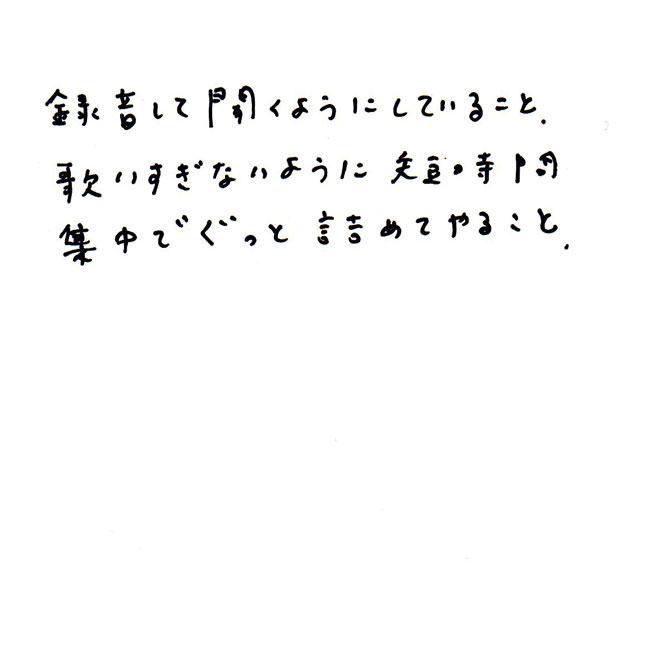 録音して聞くようにしていること.
歌いすぎないように 短時間
集中でぐっと詰めてやること.